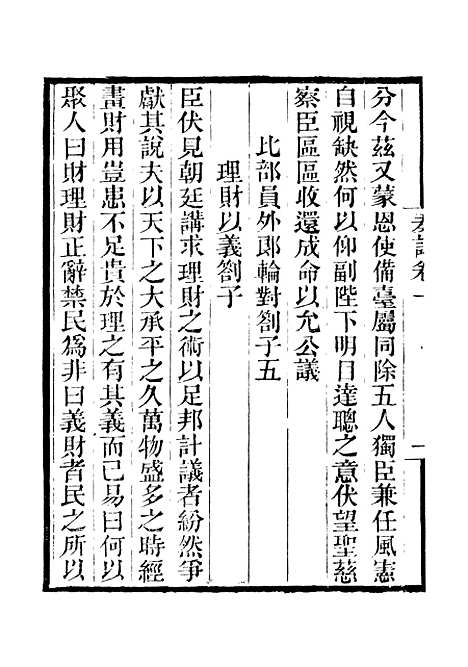 分今茲又蒙恩使備臺屬同除五人獨臣兼任風憲
自視缺然何以仰副陛下明目達聰之意伏望聖慈
察臣區區收還成命以允公議
比部員外郎輪對劄子五
理財以義劄子
臣伏見朝廷講求理財之術以足邦計議者紛然爭
獻其說夫以天下之大承平之久萬物盛多之時經
畫財用豈患不足貴於理之有其義而已易曰何以
聚人曰財理財正辭禁民爲非曰義財者民之所以